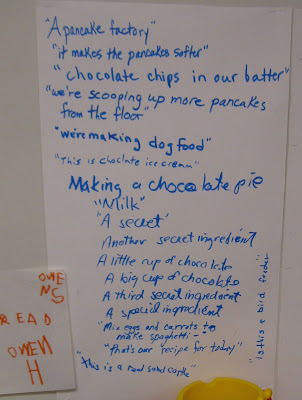 "A pancake factory"
"it makes the pancakes softer"
"chocolate chips in our batter"
"we're scooping up more pancakes
from the floor"
"we're making dog food"
"This is choclate ice cream"
Making a chocolate pie
"Milk"
"A secret'
Another secret ingredient
A little cup of chocolate
A big cup of chocolate
A third secret ingredient
A special ingredient
"Mix eggs and carrots to
make spaghetti -"
"that's our recipe for today"
"this is a sand castle"
"is this a bird feeder"
OWE
NS
READ
OWEN
H